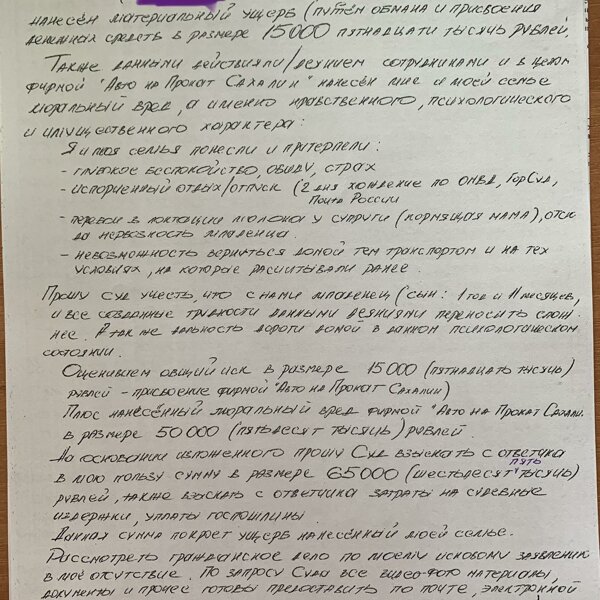 нанесён материальный ущерб (путём обмана и присвоения
денежных средств в размере 15000 пятнадцати тысячь рублей.
Также данными действиями/деянием сотрудниками и в целом
фирмой "Авто на Прокат Сахалин" нанесён мне и моей семье
моральный вред, а именно нравственного, психологического
и имущественного характера:
Я и моя семья понесли и притерпели:
- глубокое беспокойство, обиду, страх
- испорченный отдых/отпуск (2 дня хождение по ОМВД, ГорСуд,
Почта России
- перебои в лактации молока у супруги (кормящая мама), отсю-
да нервозность младенца.
- невозможность вернуться домой тем транспортом и на тех
условиях, на которые расчитывали ранее.
Прошу суд учесть, что с нами младенец (сын: 1 год и 11 месяцев,
и все созданные трудности данными деяниями переносить слож-
нее. А так же дальность дороги домой в данном психологическом
состоянии.
Оцениваем общий иск в размере 15000 (пятнадцать тысячь)
рублей - присвоение фирмой "Авто на Прокат Сахалин)
Плюс нанесённый моральный вред фирмой "Авто на Прокат Сахали
в размере 50000 (пятьдесят тысячь) рублей.
На основании изложенного прошу Суд взыскать с ответчика
пять
в мою пользу сумму в размере 65000 (шестьдесят тысячь)
рублей, также взыскать с ответчика затраты на судебные
издержки, уплаты госпошлины
Данная сумма покроет ущерб нанесённый моей семье.
Рассмотреть гражданское дело по моему исковому заявлению
в моё отсутствие. По запросу Суда все видео-фото материалы,
документы и прочее готовы предоставить по почте, электронной